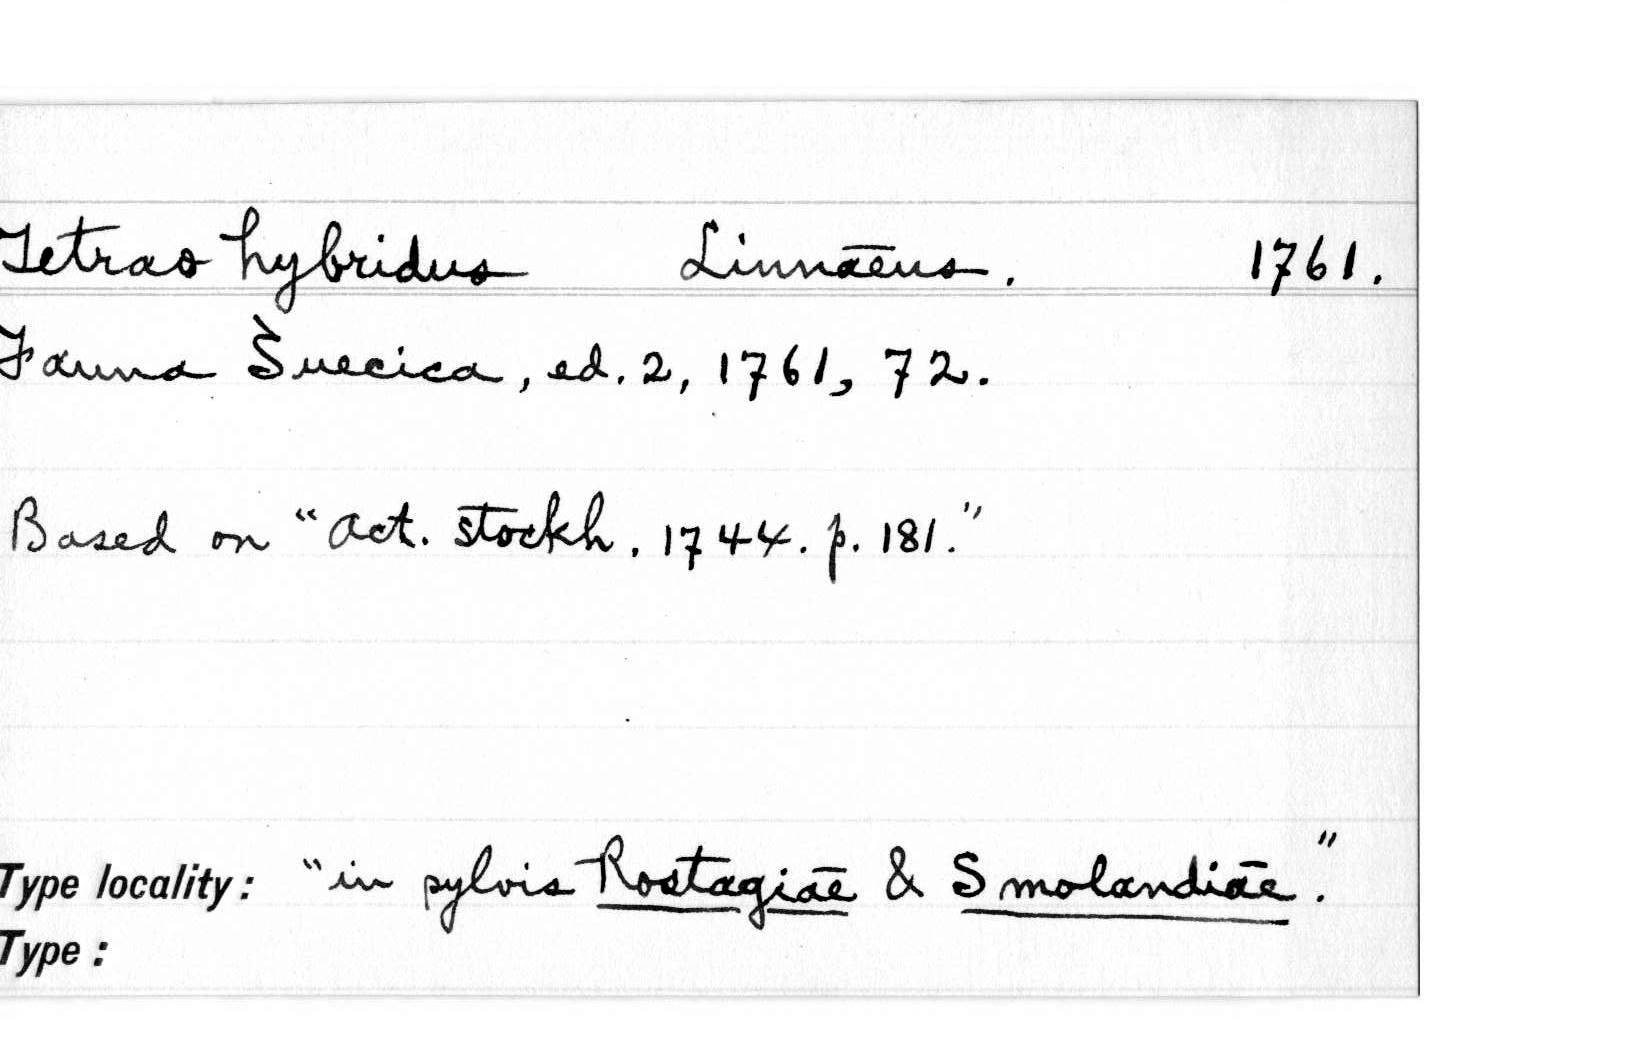 Tetrao hybridus Linnaeus. 1761.
Fauna Suecica, ed. 2, 1761, 72.
Based on "Act. stockh. 1744. p. 181."
Type locality: "in sylvis Rostagiae & Smolandiae."
Type: